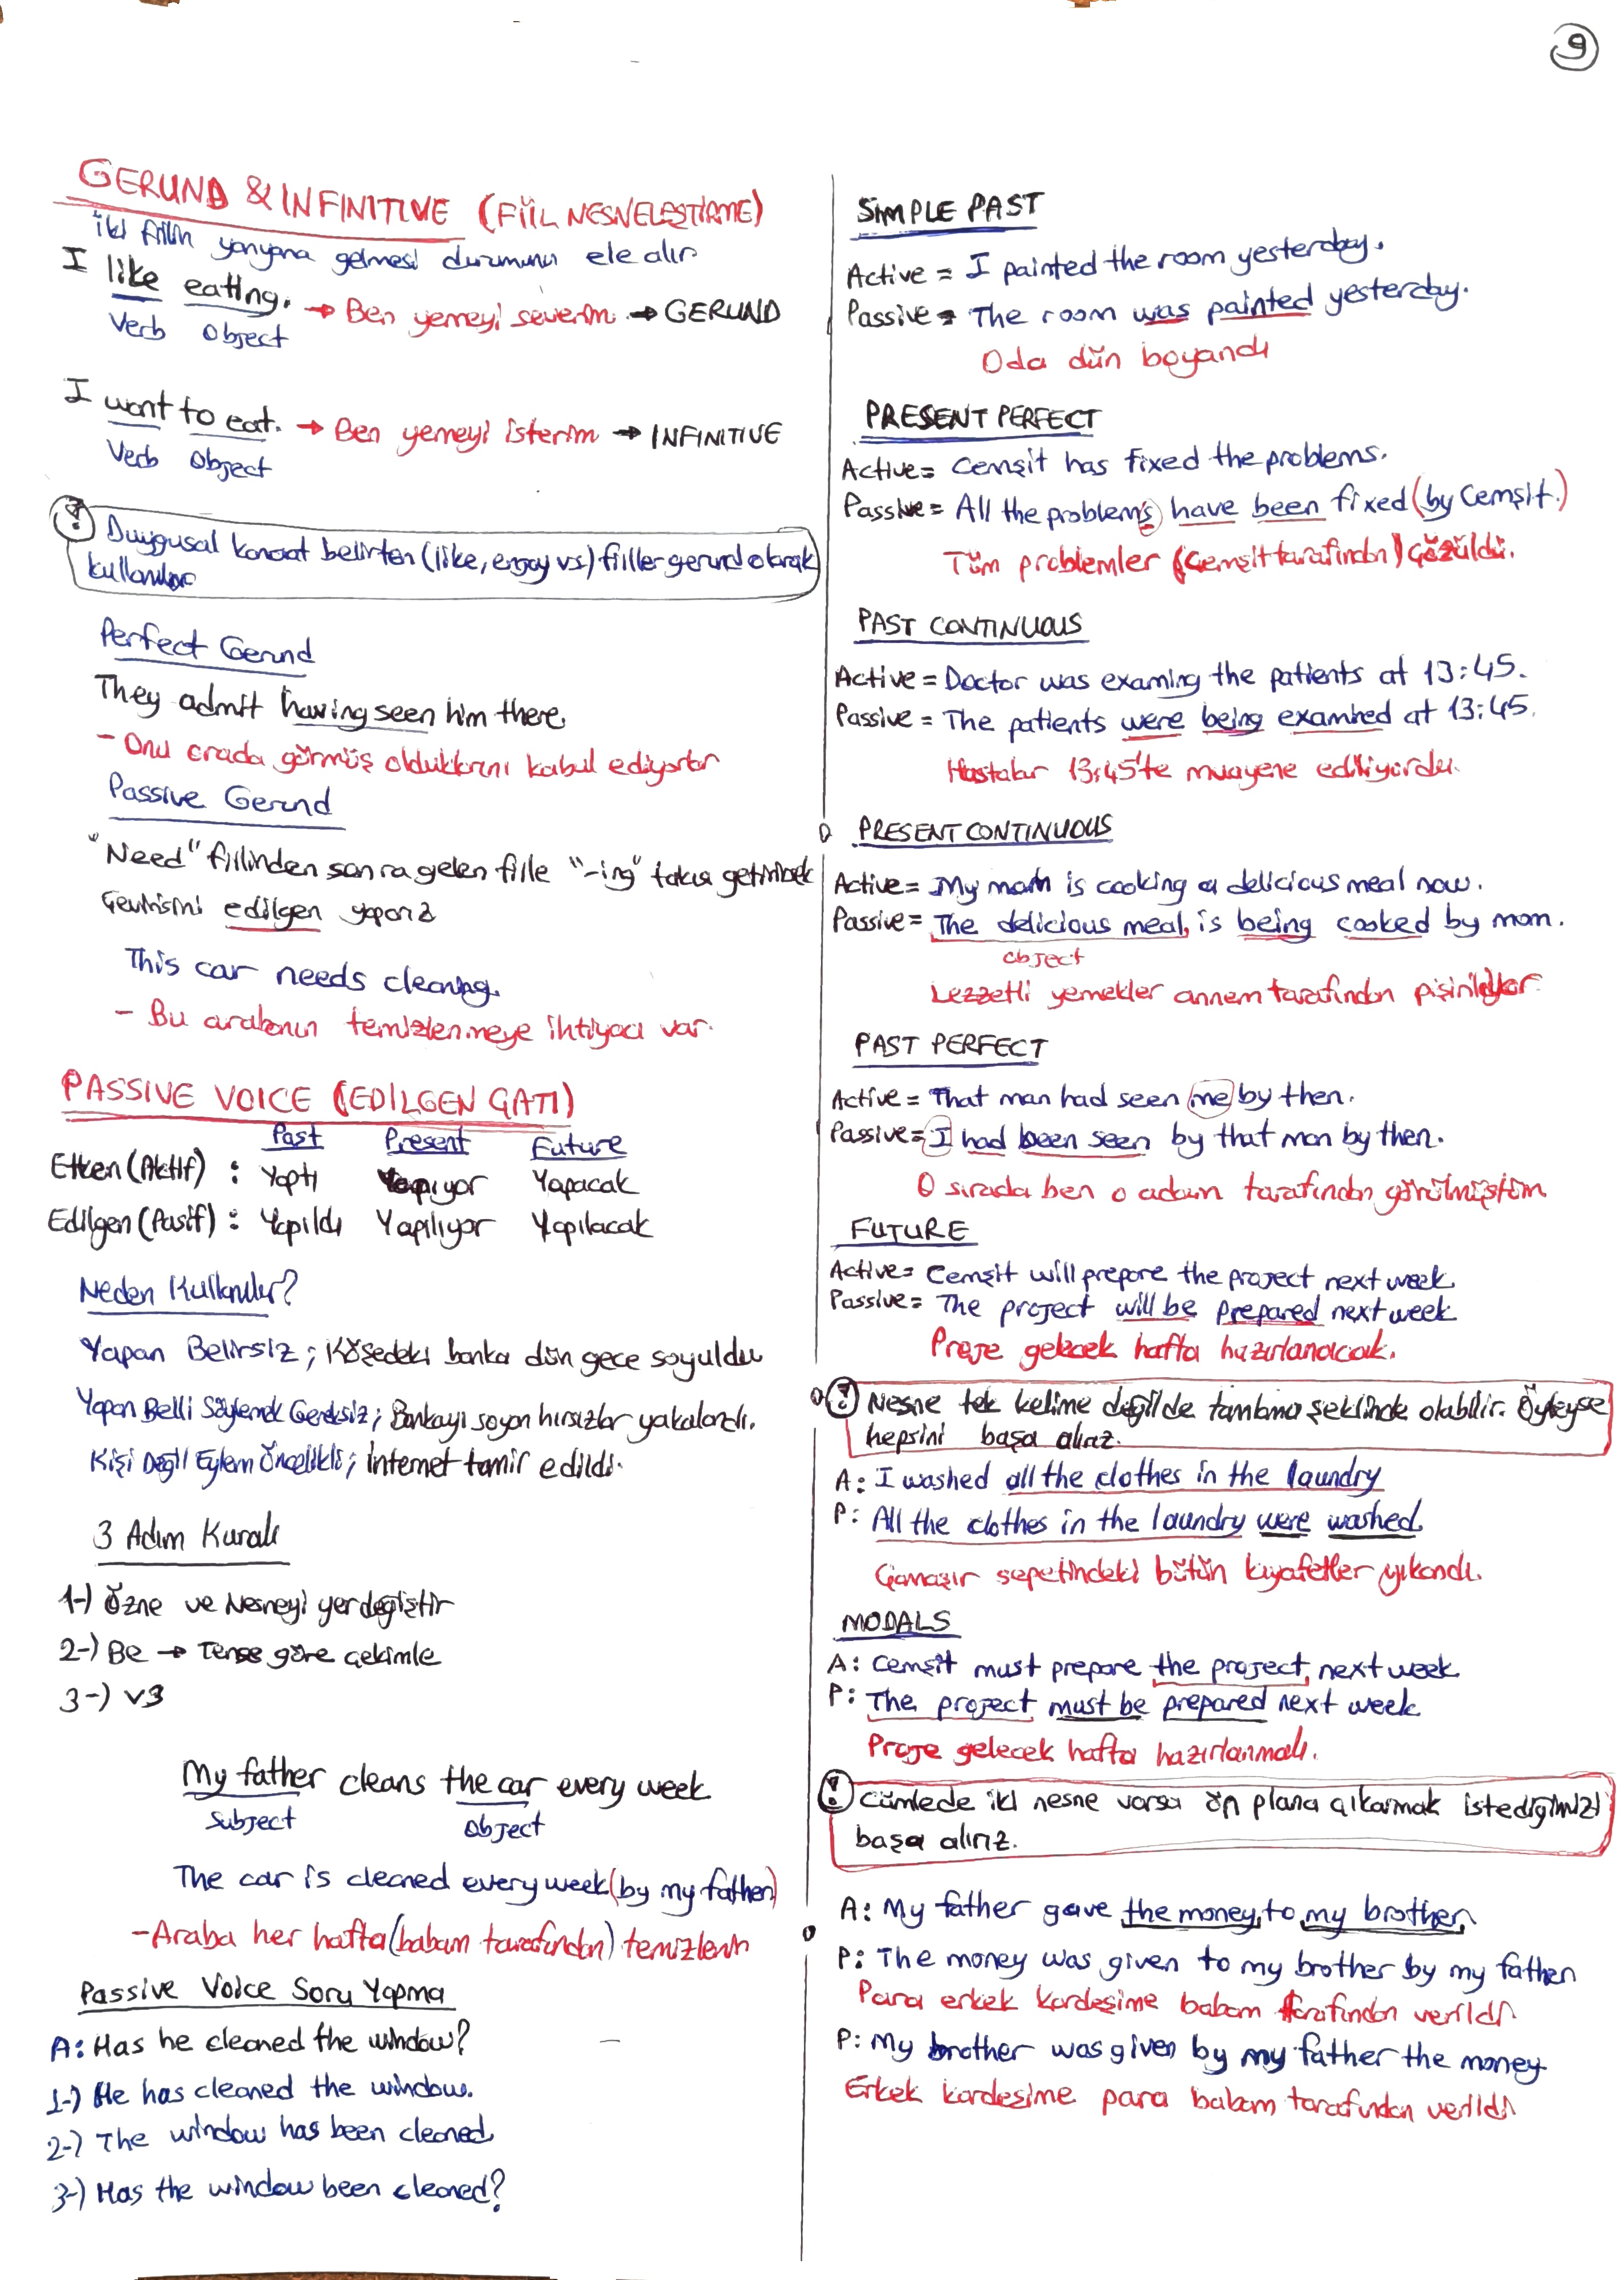 9
GERUND & INFINITIVE (FİİL NESNELEŞTİRME)
İki fiilin yanyana gelmesi durumunu ele alır
I like eating. → Ben yemeyi severim → GERUND
Verb Object
I want to eat. → Ben yemeyi isterim → INFINITIVE
Verb Object
! Duygusal kanaat belirten (like, enjoy vs) fiiller gerund olarak
kullanılır
Perfect Gerund
They admit having seen him there
- Onu orada görmüş olduklarını kabul ediyorlar
Passive Gerund
"Need" fiilinden sonra gelen fiile "-ing" takısı getirilerek
Gerundismi edilgen yaparız
This car needs cleaning.
- Bu arabanın temizlenmeye ihtiyacı var.
PASSIVE VOICE (EDİLGEN ÇATI)
Past Present Future
Etken (Aktif) : Yaptı Yapıyor Yapacak
Edilgen (Pasif) : Yapıldı Yapılıyor Yapılacak
Neden Kullanılır?
Yapan Belirsiz ; Köşedeki banka dün gece soyuldu
Yapan Belli Söylemek Gereksiz ; Bankayı soyan hırsızlar yakalandı.
Kişi Değil Eylem Öncelikli ; İnternet tamir edildi.
3 Adım Kuralı
1-) Özne ve Nesneyi yer değiştir
2-) Be → Tense göre çekimle
3-) V3
My father cleans the car every week
Subject Object
The car is cleaned every week (by my father)
- Araba her hafta (babam tarafından) temizlenir
Passive Voice Soru Yapma
A: Has he cleaned the window?
1-) He has cleaned the window.
2-) The window has been cleaned
3-) Has the window been cleaned?
SIMPLE PAST
Active = I painted the room yesterday.
Passive = The room was painted yesterday.
Oda dün boyandı
PRESENT PERFECT
Active = Cemşit has fixed the problems.
Passive = All the problems have been fixed (by Cemşit.)
Tüm problemler (Cemşit tarafından) çözüldü.
PAST CONTINUOUS
Active = Doctor was examing the patients at 13:45.
Passive = The patients were being examined at 13:45.
Hastalar 13:45'te muayene ediliyordu.
PRESENT CONTINUOUS
Active = My mom is cooking a delicious meal now.
Passive = The delicious meal, is being cooked by mom.
object
Lezzetli yemekler annem tarafından pişiriliyor.
PAST PERFECT
Active = That man had seen me by then.
Passive = I had been seen by that man by then.
O sırada ben o adam tarafından görülmüştüm
FUTURE
Active = Cemşit will prepare the project next week
Passive = The project will be prepared next week
Proje gelecek hafta hazırlanacak.
! Nesne tek kelime değilde tamlama şeklinde olabilir. Öyleyse
hepsini başa alırız.
A: I washed all the clothes in the laundry
P: All the clothes in the laundry were washed.
Çamaşır sepetindeki bütün kıyafetler yıkandı.
MODALS
A: Cemşit must prepare the project, next week
P: The project must be prepared next week
Proje gelecek hafta hazırlanmalı.
! Cümlede iki nesne varsa ön plana çıkarmak istediğimizi
başa alırız.
A: My father gave the money, to my brother.
P: The money was given to my brother by my father
Para erkek kardeşime babam tarafından verildi
P: My brother was given by my father the money
Erkek kardeşime para babam tarafından verildi